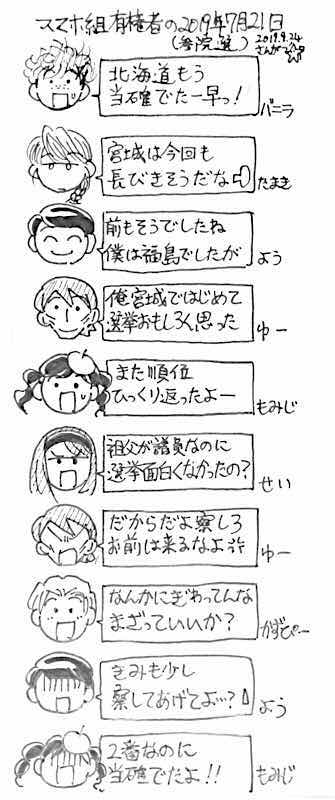 スマホ組有権者の2019年7月21日
(参院選)
2019.9.24
北海道もう
当確でたー早っ!
バニラ
宮城は今回も
長びきそうだな
たまき
前もそうでしたね
僕は福島でしたが
よう
俺宮城ではじめて
選挙おもしろく思った
ゆー
また順位
ひっくり返ったよー
もみじ
祖父が議員なのに
選挙面白くなかったの?
せい
だからだよ察しろ
お前は来るなよ
ゆー
なんかにぎわってんな
まざっていいか?
かずぴー
きみも少し
察してあげてよ…?
よう
2番なのに
当確でたよ!!
もみじ